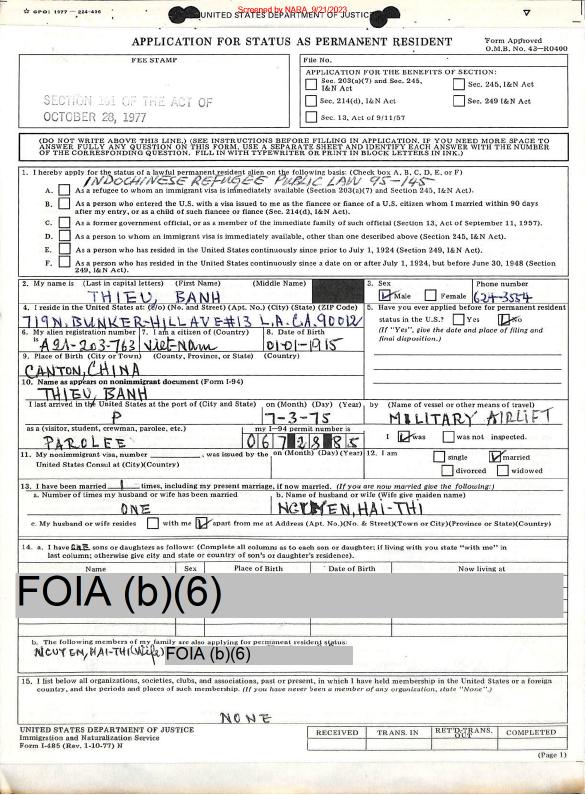 ☆ GPO: 1977 — 224-406
Screened by NARA, 9/21/2023
UNITED STATES DEPARTMENT OF JUSTICE
APPLICATION FOR STATUS AS PERMANENT RESIDENT
Form Approved
O.M.B. No. 43-R0400
FEE STAMP
SECTION 101 OF THE ACT OF
OCTOBER 28, 1977
File No.
APPLICATION FOR THE BENEFITS OF SECTION:
Sec. 203(a)(7) and Sec. 245, I&N Act
Sec. 245, I&N Act
Sec. 214(d), I&N Act
Sec. 249 I&N Act
Sec. 13, Act of 9/11/57
(DO NOT WRITE ABOVE THIS LINE.) (SEE INSTRUCTIONS BEFORE FILLING IN APPLICATION. IF YOU NEED MORE SPACE TO
ANSWER FULLY ANY QUESTION ON THIS FORM, USE A SEPARATE SHEET AND IDENTIFY EACH ANSWER WITH THE NUMBER
OF THE CORRESPONDING QUESTION. FILL IN WITH TYPEWRITER OR PRINT IN BLOCK LETTERS IN INK.)
1. I hereby apply for the status of a lawful permanent resident alien on the following basis: (Check box A, B, C, D, E, or F)
INDOCHINESE REFUGEE PUBLIC LAW 95-145
A. As a refugee to whom an immigrant visa is immediately available (Sections 203(a)(7) and Section 245, I&N Act).
B. As a person who entered the U.S. with a visa issued to me as the fiancee or fiance of a U.S. citizen whom I married within 90 days
after my entry, or as a child of such fiancee or fiance (Sec. 214(d), I&N Act).
C. As a former government official, or as a member of the immediate family of such official (Section 13, Act of September 11, 1957).
D. As a person to whom an immigrant visa is immediately available, other than one described above (Section 245, I&N Act).
E. As a person who has resided in the United States continuously since prior to July 1, 1924 (Section 249, I&N Act).
F. As a person who has resided in the United States continuously since a date on or after July 1, 1924, but before June 30, 1948 (Section
249, I&N Act).
2. My name is (Last in capital letters) (First Name) (Middle Name)
THIEU, BANH
3. Sex
Male Female
Phone number
624-3554
4. I reside in the United States at: (c/o) (No. and Street) (Apt. No.) (City) (State) (ZIP Code)
719 N. BUNKER-HILL AVE #13 L.A. CA. 90012
5. Have you ever before applied for permanent resident
status in the U.S.? Yes No
(If "Yes", give the date and place of filing and
final disposition.)
6. My alien registration number is
A21-203-763
7. I am a citizen of (Country)
Viet-Nam
8. Date of Birth
01-01-1915
9. Place of Birth (City or Town) (County, Province, or State) (Country)
CANTON, CHINA
10. Name as appears on nonimmigrant document (Form I-94)
THIEU, BANH
I last arrived in the United States at the port of (City and State)
P
on (Month) (Day) (Year)
7-3-75
by (Name of vessel or other means of travel)
MILITARY AIRLIFT
as a (visitor, student, crewman, parolee, etc.)
PAROLEE
my I-94 permit number is
I was was not inspected.
11. My nonimmigrant visa, number , was issued by the
United States Consul at (City)(Country)
on (Month) (Day) (Year)
12. I am
single married
divorced widowed
13. I have been married 1 times, including my present marriage, if now married. (If you are now married give the following:)
a. Number of times my husband or wife has been married
ONE
b. Name of husband or wife (Wife give maiden name)
NGUYEN, HAI-THI
c. My husband or wife resides with me apart from me at Address (Apt. No.)(No. & Street)(Town or City)(Province or State)(Country)
14. a. I have ONE sons or daughters as follows: (Complete all columns as to each son or daughter; if living with you state "with me" in
last column; otherwise give city and state or country of son's or daughter's residence).
Name Sex Place of Birth Date of Birth Now living at
FOIA (b)(6)
b. The following members of my family are also applying for permanent resident status:
NGUYEN, HAI-THI (Wife) FOIA (b)(6)
15. I list below all organizations, societies, clubs, and associations, past or present, in which I have held membership in the United States or a foreign
country, and the periods and places of such membership. (If you have never been a member of any organization, state "None".)
NONE
UNITED STATES DEPARTMENT OF JUSTICE
Immigration and Naturalization Service
Form I-485 (Rev. 1-10-77) N
RECEIVED TRANS. IN RET'D-TRANS. OUT COMPLETED
(Page 1)